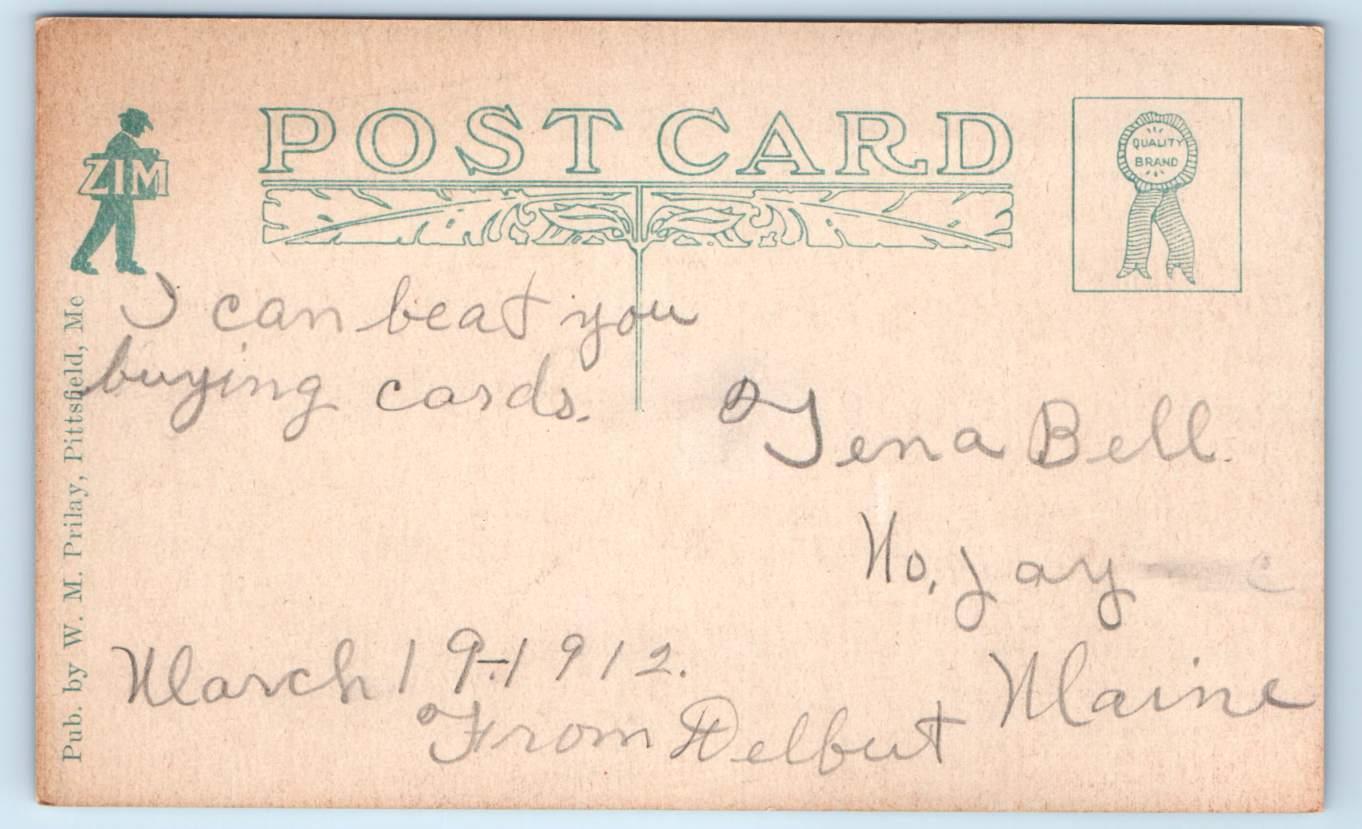 POST CARD
ZIM
QUALITY
BRAND
Pub. by W. M. Prilay, Pittsfield, Me
I can beat you
buying cards.
Tena Bell.
No, Jay
Maine
March 19-1912.
From Delbut